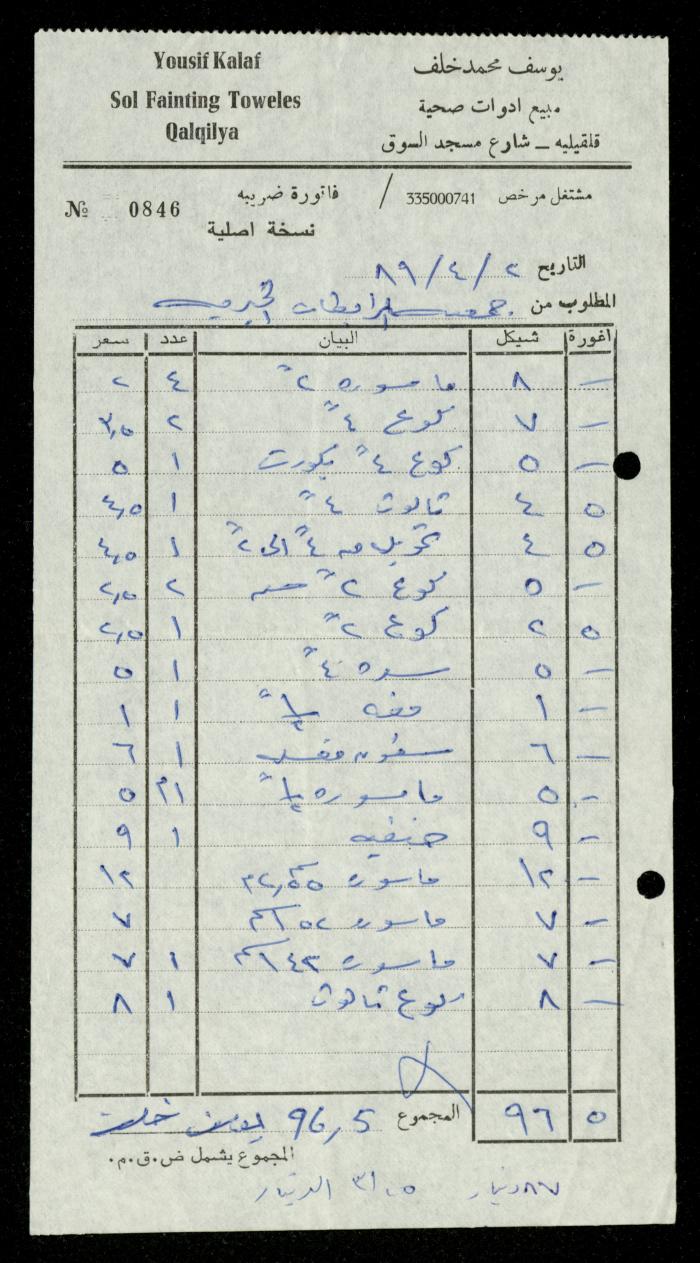 Yousif Kalaf
Sol Fainting Toweles
Qalqilya
يوسف محمد خلف
مبيع ادوات صحية
قلقيليه _ شارع مسجد السوق
№ 0846
فاتورة ضريبه / مشتغل مرخص 335000741
نسخة اصلية
التاريخ ٢ / ٤ / ٨٩
المطلوب من جمعية المرابطات الخيرية
اغورة شيكل البيان عدد سعر
— ٨ ماسورة ٢" ٤ ٢
— ٧ كوع ٤" ٢ ٣,٥
— ٥ كوع ٤" ١ ٥
٥ ٤ ٤" ١ ٤,٥
٥ ٤ تحويل من ٤" الى ٢" ١ ٤,٥
— ٥ كوع ٢" ٢ ٢,٥
٥ ٢ كوع ٢" ١ ٢,٥
— ٥ سدة ٤" ١ ٥
— ١ ١/٢" ١ ١
— ٦ سفون ١ ٦
— ٥ ماسورة ١/٢" ١م ٥
— ٩ حنفيه ١ ٩
— ١٢ ماسورة ١٢
— ٧ ماسورة ٧
— ٧ ماسورة ١ ٧
— ٨ كوع ١ ٨
٥ ٩٦ المجموع 96,5 يوسف خلف
المجموع يشمل ض.ق.م.
دينار الدينار